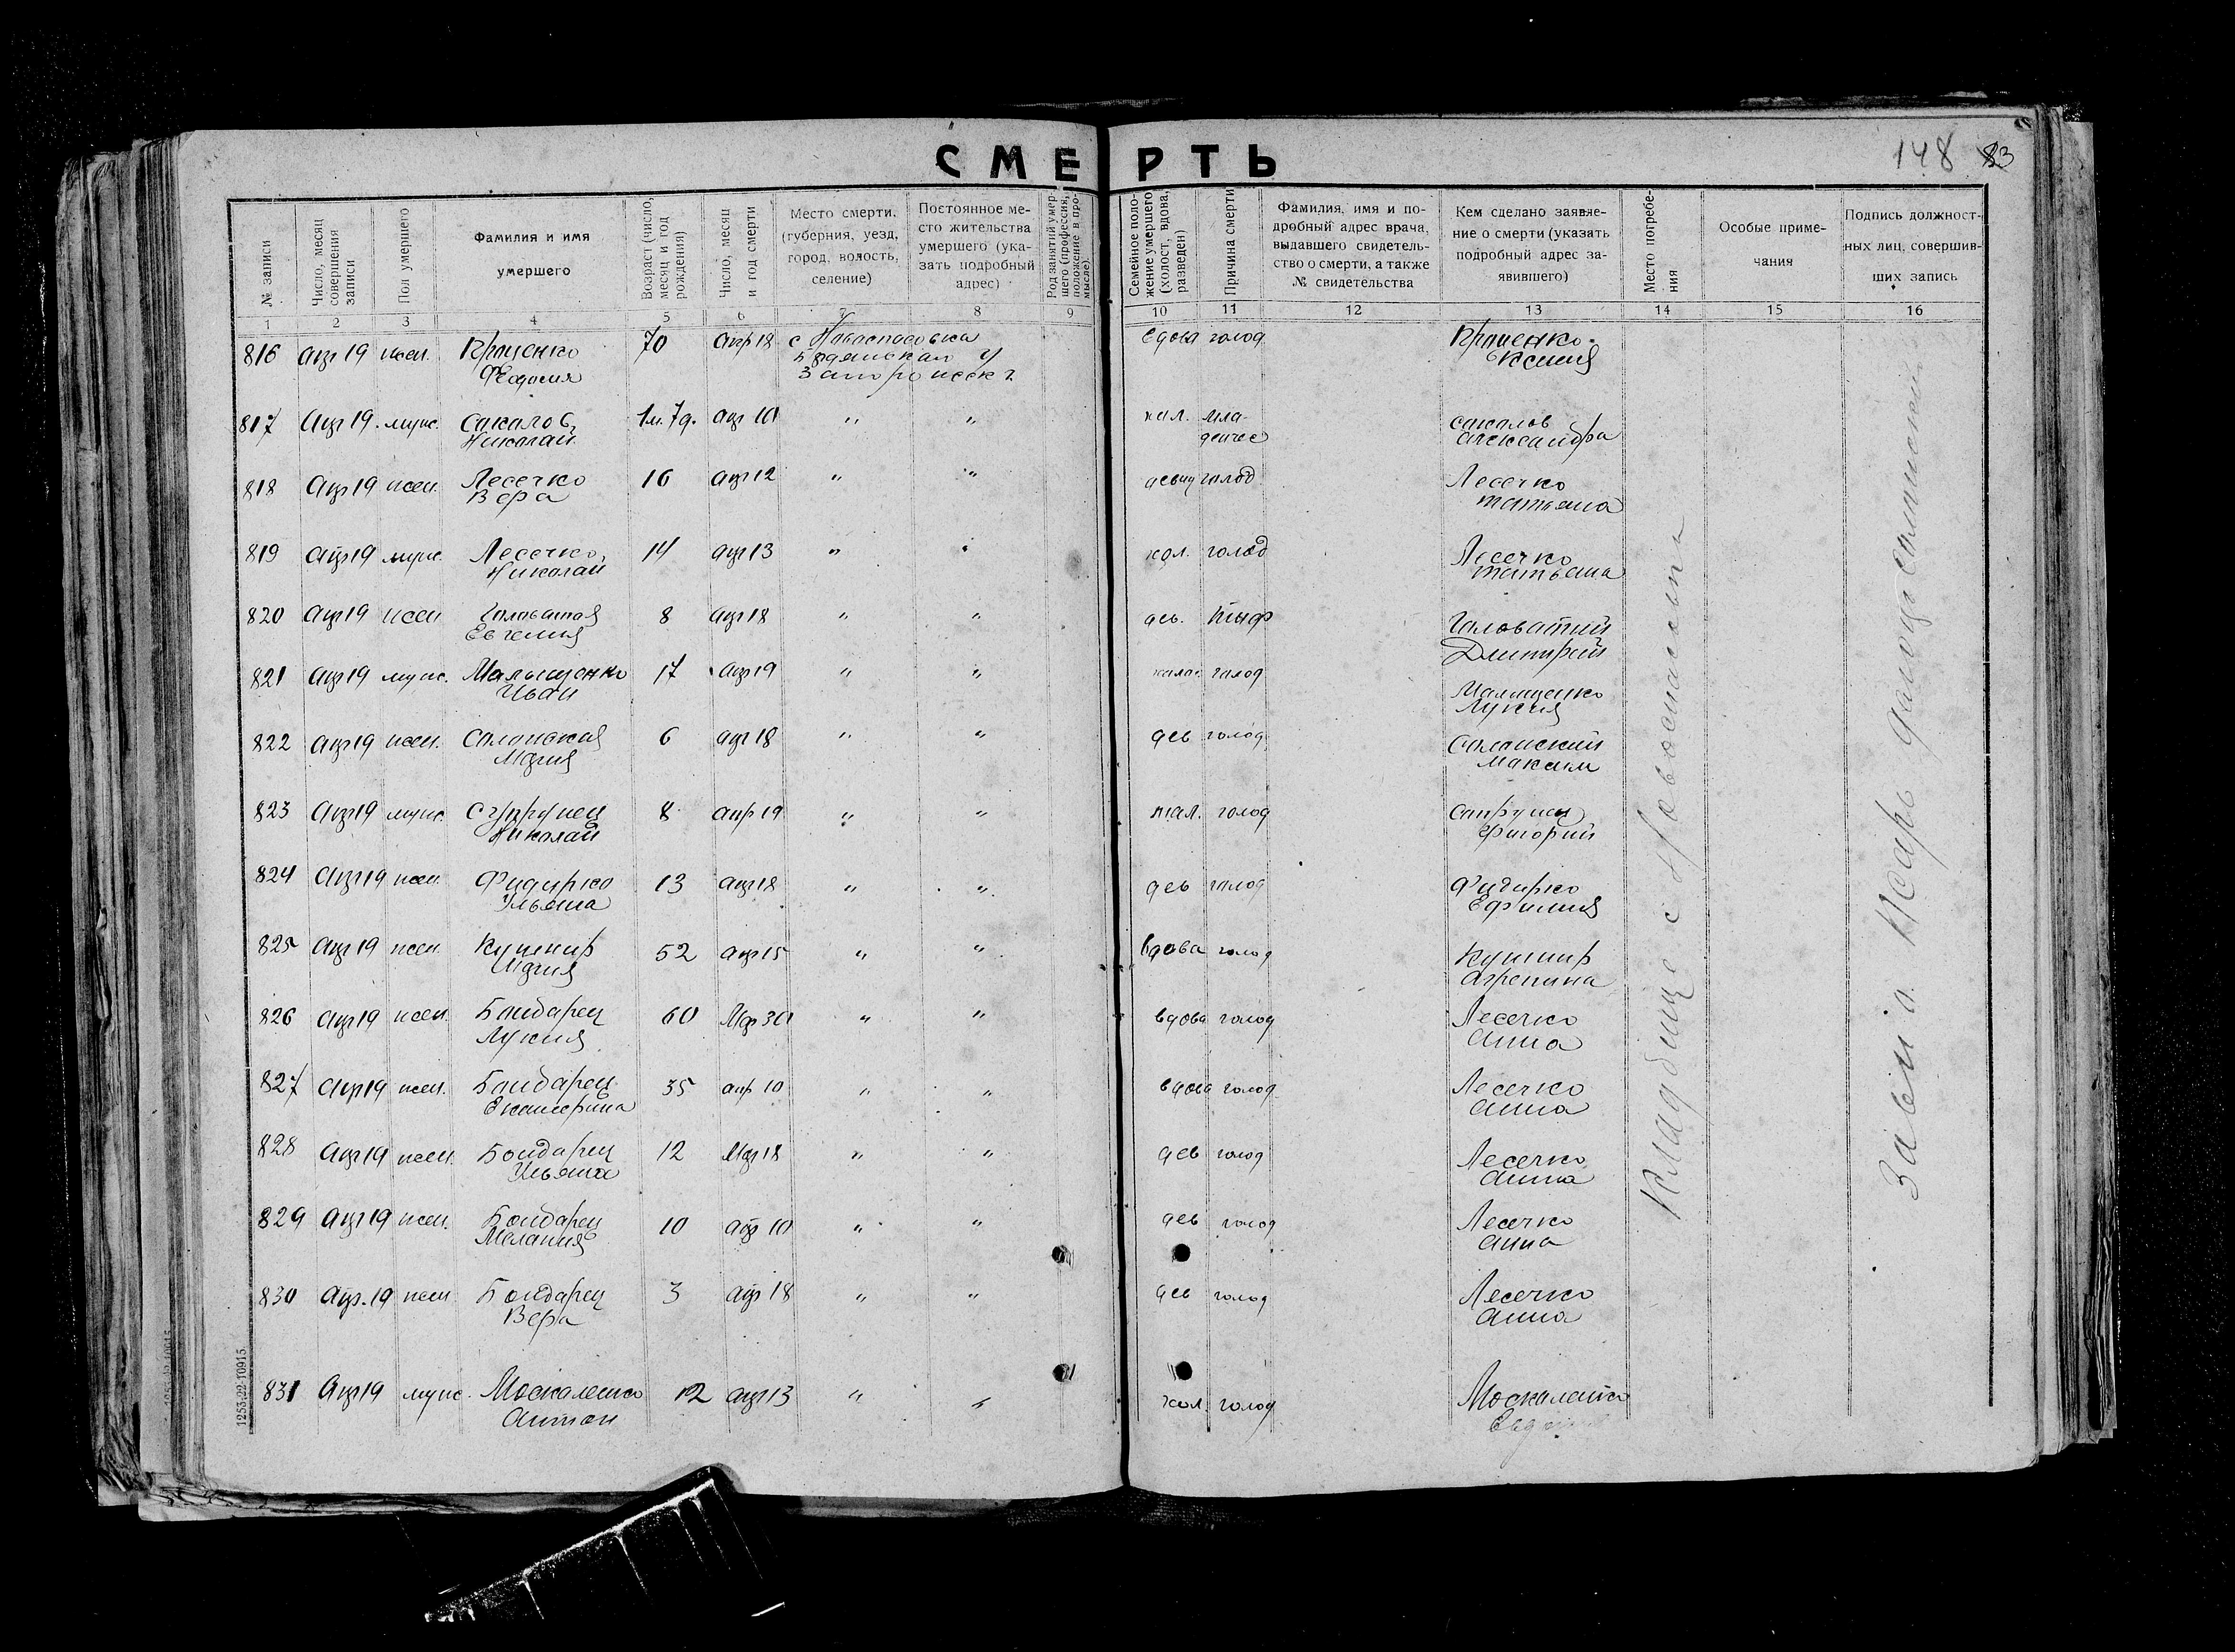 СМЕРТЬ
148 83
№ записи
Число, месяц совершения записи
Пол умершего
Фамилия и имя умершего
Возраст (число, месяц и год рождения)
Число, месяц и год смерти
Место смерти, (губерния, уезд, город, волость, селение)
Постоянное место жительства умершего (указать подробный адрес)
Род занятий умершего (профессия, положение в промысле).
Семейное положение умершего (холост, вдова, разведен)
Причина смерти
Фамилия, имя и подробный адрес врача, выдавшего свидетельство о смерти, а также № свидетельства
Кем сделано заявление о смерти (указать подробный адрес заявившего)
Место погребения
Особые примечания
Подпись должностных лиц, совершивших запись
1 2 3 4 5 6 7 8 9 10 11 12 13 14 15 16
816 апр 19 жен. 70 апр 18 с Новоспасовка вдова голод
Запорожск г
817 Апр 19. муж. Сакалов 1м. 7д. апр 10 " " хол. мла- Сакалов
Николай денчес Александра
818 Апр 19 жен. Лесечко 16 апр 12 " " девиц голод Лесечко
Вера Татьяна
819 Апр 19 муж. Лесечко 14 апр 13 " " хол. голод Лесечко
Николай Татьяна
820 Апр 19 жен Головатая 8 апр 18 " " дев. тыф Головатий
Евгения Дмитрий
821 Апр 19 муж. Малыщенко 17 Апр 19 " " холос голод Малищенко
Иван Лукия
822 Апр 19 жен. 6 апр 18 " " дев голод
Мария Максим
823 Апр 19 муж. Супрунец 8 апр 19 " " хол. голод Супрунец
Николай Григорий
824 Апр 19 жен. Фидирко 13 апр 18 " " дев голод Фидирко
Ульяна Ефимия
825 Апр 19 жен. Кушнир 52 апр 15 " " вдова голод Кушнир
Мария Агрепина
826 Апр 19 жен. Бондарец 60 Мар 30 " " вдова голод Лесечко
Лукия Анна
827 Апр 19 жен. Бондарец 35 апр 10 " " вдова голод Лесечко
Екатерина Анна
828 Апр 19 жен. Бондарец 12 Мар 18 " " дев голод Лесечко
Ульяна Анна
829 Апр 19 жен. Бондарец 10 апр 10 " " дев голод Лесечко
Мелания Анна
830 Апр. 19 жен Бондарец 3 апр 18 " " дев голод Лесечко
Вера Анна
831 Апр 19 муж. Москаленко 12 апр 13 " " хол. голод Москаленко
Антон
Кладбище с Новоспасовка
1253.22-10915.